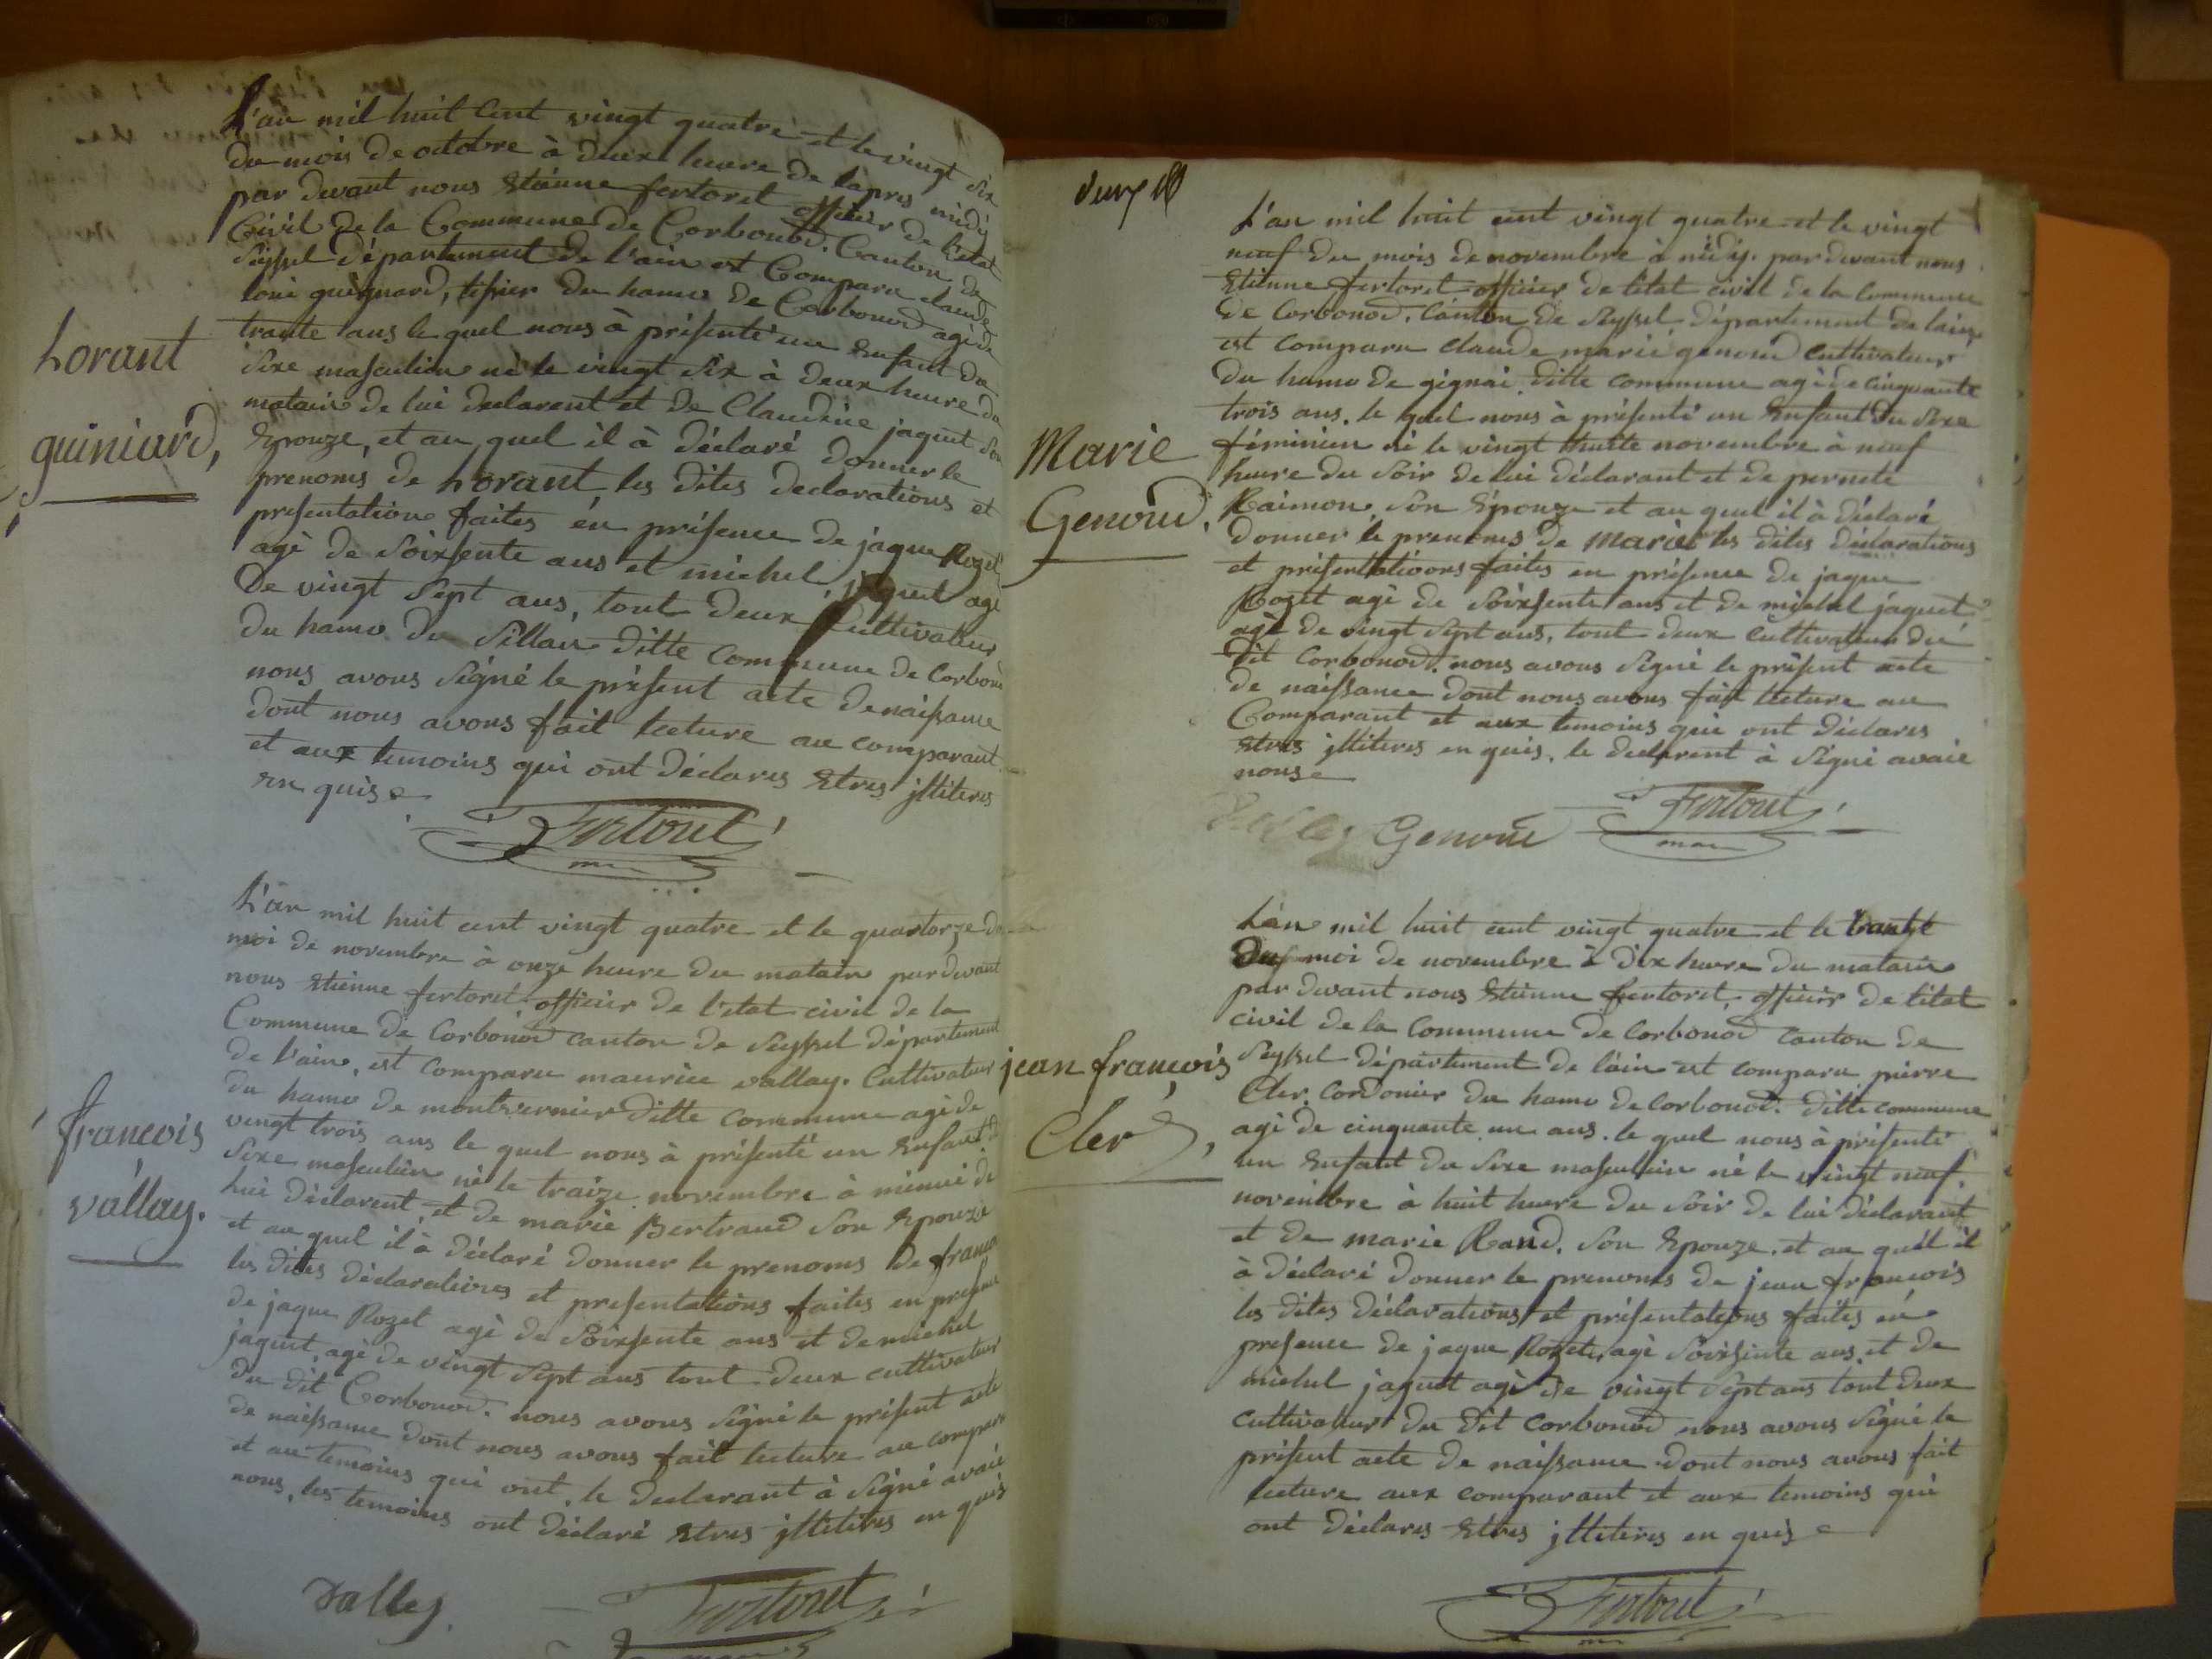 L'an mil huit Cent vingt quatre et le vingt six
du mois de octobre à deux heure de lapres midy
par devant nous Etienne fertoret officier de l'etat
Civil de la Commune de Corbonod. Canton de
Seyssel département de l'ain est Comparu claude
loui guignard, tissier du hamo de Corbonod agé de
trante ans le quel nous à présenté un Enfant du
Sixe masculin né le vingt Six à deux heure du
matain de lui declarent et de Claudine jaquet Son
Epouze, et au quel il à déclaré donner le
prenoms de Lorant, les dites declarations et
presentations faites én présence de jaque Rozet
agè de Soixsente ans et michel jaquet agé
De vingt Sept ans, tout deux Cultivateur
du hamo de Sillain ditte Commune de Corbonod
nous avons Signé le présent acte de naissance
dont nous avons fait lecture au comparant
et aux temoins qui ont déclares Etres illiteres
en quis
Lorant
guiniard,
Fertoret
L'an mil huit cent vingt quatre et le quartorze du
moi de novembre à onze heure du matain par devant
nous Etienne fertoret officier de l'etat civil de la
Commune de Corbonod canton de Seyssel département
de l'ain, est comparu maurice vallay. Cultivateur
du hamo de montvernier ditte Commune agè de
vingt trois ans le quel nous à présenté un Enfant du
Sixe masculin né le traize novembre à minui de
lui déclarent et de marie Bertrand Son Epouze
et au quel il à déclaré donner le prenoms de francois
les dites déclarations et presentations faites en presence
de jaque Rozet agé de Soixsente ans et de michel
jaquet agé de vingt Sept ans tout deux cultivateur
du dit Corbonod. nous avons Signé le présent acte
de naissance dont nous avons fait lecture au comparu
et au temoins qui ont, le declarant à Signé avaic
nous, les temoins ont déclaré Etres illiteres en quis
françois
vallay.
Valley
Fertoret
L'an mil huit cent vingt quatre et le vingt
neuf du mois de novembre à midy. par devant nous
Etienne fertoret officier de l'état civil de la Commune
de Corbonod. Canton de Seyssel département de lain
est comparu claude marie genoud cultivateur
du hamo de gignai ditte commune agé de cinquante
trois ans. le quel nous à présenté un Enfant du Sixe
féminin né le vingt huite novembre à neuf
heure du Soir de lui déclarant et de pernete
Raimon, Son Epouze et au quel il à déclaré
donner le prenoms de marie les dites déclarations
et présentations faites en présence de jaque
Rozet agé de Soixsente ans et de michel jaquet
agé de vingt Sept ans, tout deux cultivateur du
dit Corbonod. nous avons Signé le présent acte
de naissance dont nous avons fait lecture au
Comparant et aux temoins qui ont déclares
Etres illiteres en quis, le declarent à Signé avaic
nous
Marie
Genoud.
Genoud
Fertoret
L'an mil huit cent vingt quatre et le trante
du moi de novembre à dix heure du matain
par devant nous Etienne fertoret officier de l'état
civil de la Commune de Corbonod Canton de
Seyssel département de l'ain est comparu pierre
Cler, Cordonier du hamo de Corbonod. ditte commune
agé de cinquante un ans. le quel nous à présenté
un Enfant du Sixe masculin né le vingt neuf
novembre à huit heure du Soir de lui déclarant
et de marie Rand. Son Epouze. et au quél il
à déclaré donner le prenoms de jean francois
les dites déclarations et présentations faites en
presence de jaque Rozet, agé Soixsinte ans et de
michel jaquet agé de vingt Sept ans tout deux
cultivateur du dit Corbonod nous avons Signé le
présent acte de naissance dont nous avons fait
lecture aux comparant et aux temoins qui
ont déclares Etres illiteres en quis
jean françois
Cler,
Fertoret